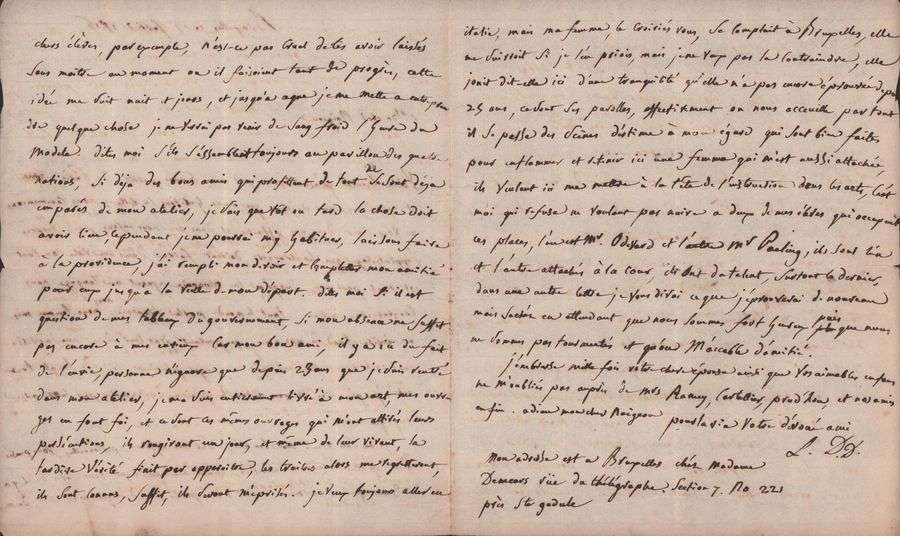 chers élèves, par exemple, n'est-ce pas cruel de les avoir laissés
sans maitre au moment ou il faisoient tant de progrès, cette
idée me suit nuit et jours, et jusqu'a ce que je me mette a
de quelque chose je ne verrai pas venir de sang froid l'heure du
modele dites moi s'ils s'assemblent toujours au pavillon des quatre
nations, si déja des bons amis qui profittent de tout ne se sont déja
emparés de mon atelier, je sais que tot ou tard la chose doit
avoir lieu, cependant je ne pourrai m'y habituer, laissons faire
a la providence, j'ai rempli mon devoir et mon amitié
pour eux jusqu'a la veille de mon départ. dites moi s'il est
question de mes tableaux du gouvernement, si mon absence ne suffit
pas encore à mes car mon bon ami, il y a ici du fait
de l'envie, personne n'ignore que depuis 25 ans que je suis rentré
dans mon atelier, je me suis entierement livré à mon art, mes ouvra
ges en font foi, et ce sont ces mêmes ouvrages qui m'ont attirés leurs
persécutions, ils rougiront un jour, et même de leur vivant, la
tardive vérité finit par apparoitre, les traitres alors me regretteront,
ils sont connus, suffit, ils seront méprisés. je veux toujours aller en
italie, mais ma femme, le croiriés vous, se complait à Bruxelles, elle
me suivroit si je l'en priois, mais je ne veux pas la contraindre, elle
jouit dit-elle ici d'une tranquilité qu'elle n'a pas encore éprouvée depuis
25 ans, ce sont ses parolles, effectivement on nous acceuille par tout
il se passe des scènes d'estime à mon égard qui sont bien faites
pour enflammer et retenir ici une femme qui m'est aussi attachée,
ils veulent ici me mettre à la tête de l'instruction dans les arts, c'est
moi qui refuse ne voulant pas nuire a deux de mes élèves qui occupent
ces places, l'un est Mr. Odevard et l'autre Mr. ils sont l'un
et l'autre attachés à la cour, ils ont du talent, surtout le dernier,
dans une autre lettre je vous dirai ce que j'éprouverai de nouveau
mais sachés en attendant que nous sommes fort heureux puis que nous
ne sommes pas tourmentés et qu'on m'accable d'amitié.
j'embrasse mille fois votre chere épouse ainsi que vos aimables enfans
ne m'oubliés pas auprès de mrs Ramey, Castellier, prud'hon, et nos amis
enfin. adieu mon cher Naigeon
pour la vie votre dévoué ami
L. DD.
Mon adresse est a Bruxelles chés Madame
Demeurs rüe du thélégraphe. Section 7. No 221
près Ste gudule